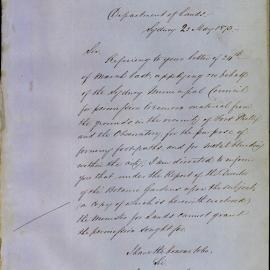 Department of Lands.
Sydney 2 May 1870
Sir
Referring to your letter of 24th
of March last, applying on behalf
of the Sydney Municipal Council
for permission to remove material from
the grounds in the vicinity of Fort Phillip
and the Observatory for the purpose of
forming footpaths, and for
within the city, I am directed to inform
you that under the Report of the
of the Botanic Gardens upon the subject,
a copy of which is herewith enclosed,
the Minister for Lands cannot grant
the permission sought for.
I have the honor to be
Sir